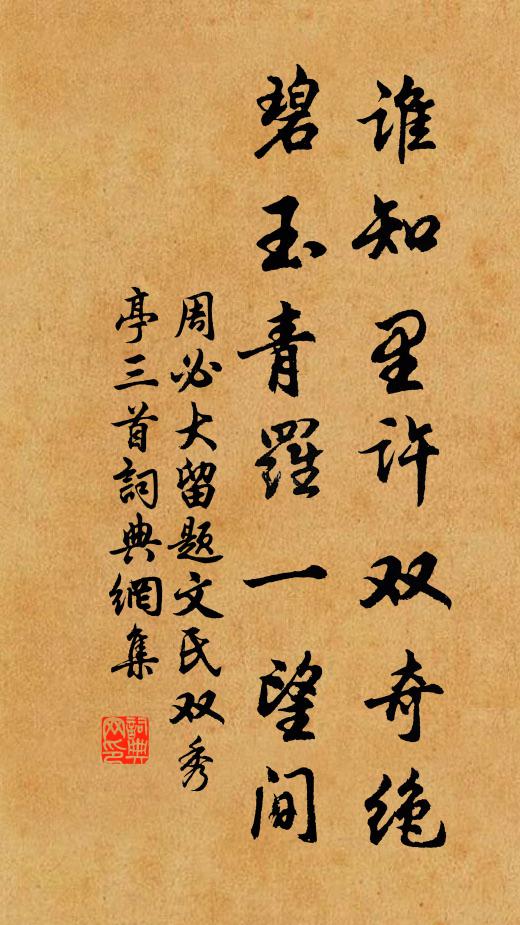 谁知里许双奇绝
碧玉青羅一望间
周必大留题文氏双秀
亭三首詞典網集
詞典
网印